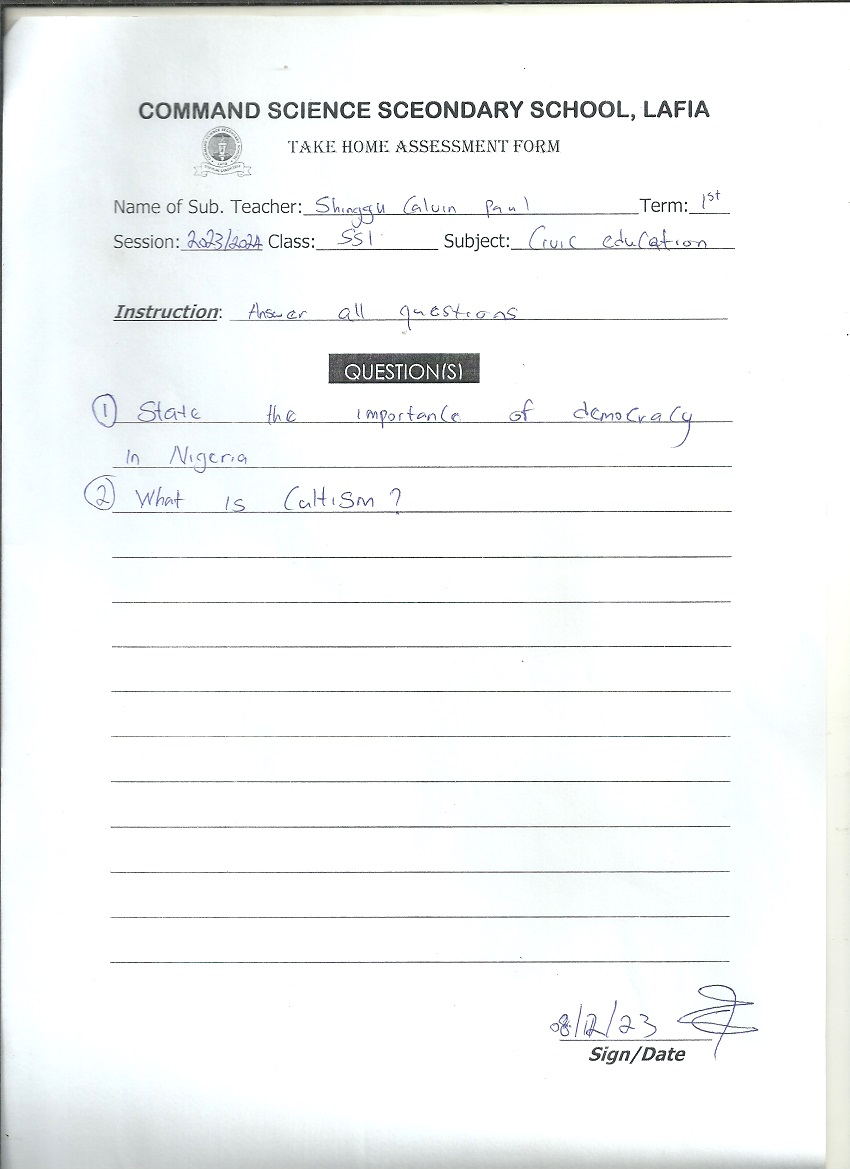 COMMAND SCIENCE SCEONDARY SCHOOL, LAFIA
TAKE HOME ASSESSMENT FORM
Name of Sub. Teacher: Shinggu Calvin Paul Term: 1st
Session: 2023/2024 Class: SS1 Subject: Civic education
Instruction: Answer all questions
QUESTION(S)
1 State the importance of democracy
in Nigeria
2 What is Cultism?
08/12/23
Sign/Date